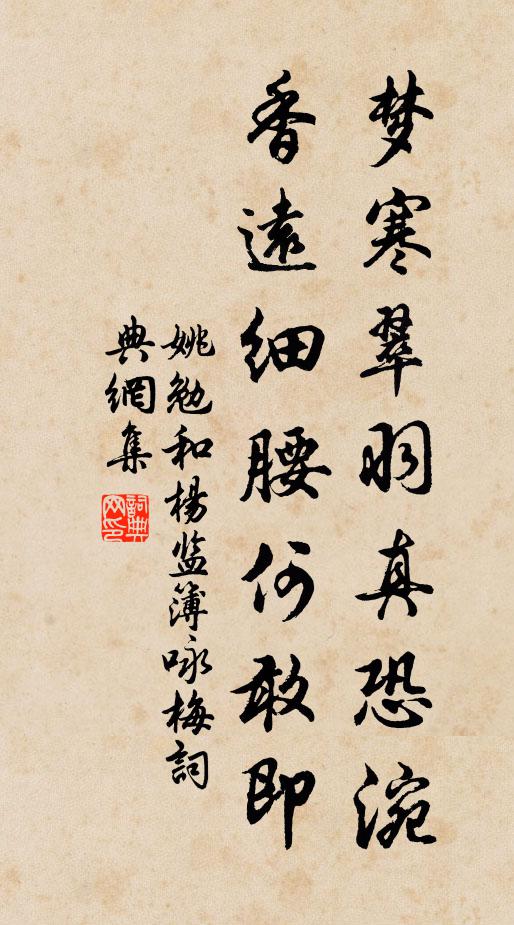 梦寒翠羽真恐涴
香遠细腰何敢即
姚勉和楊监簿咏梅詞
典網集
詞典
网印